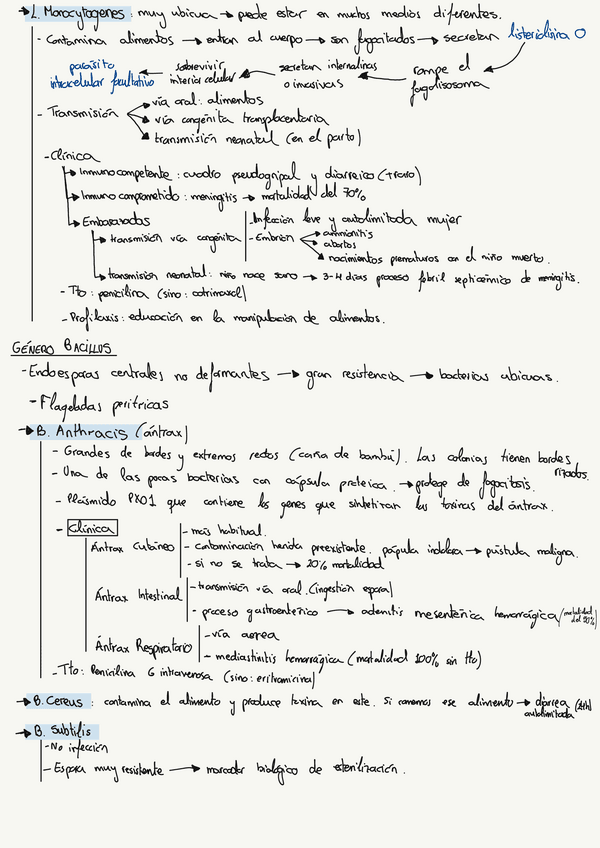 → L. Monocytogenes: muy ubicua → puede estar en muchos medios diferentes.
- Contamina alimentos → entran al cuerpo → son fagocitados → secretan listeriolisina O
parásito intracelular facultativo ← sobrevivir interior celular ← secretan internalinas o invasivas ← rompe el fagolisosoma
- Transmisión
→ vía oral: alimentos
→ vía congénita transplacentaria
→ transmisión neonatal (en el parto)
- Clínica
→ Inmunocompetente: cuadro pseudogripal y diarreico (+raro)
→ Inmunocomprometido: meningitis → mortalidad del 70%
→ Embarazadas
→ transmisión vía congénita
- Infección leve y autolimitada mujer
- Embrión
→ amnionitis
→ abortos
→ nacimientos prematuros con el niño muerto.
→ transmisión neonatal: niño nace sano → 3-4 días proceso febril septicémico de meningitis.
- Tto: penicilina (sino: cotrimoxazol)
- Profilaxis: educación en la manipulación de alimentos.
GÉNERO BACILLUS
- Endoesporas centrales no deformantes → gran resistencia → bacterias ubicuas.
- Flageladas perítricas
→ B. Anthracis (ántrax)
- Grandes de bordes y extremos rectos (caña de bambú). Las colonias tienen bordes rizados.
- Una de las pocas bacterias con cápsula proteica. → protege de fagocitosis.
- Plásmido PXO1 que contiene los genes que sintetizan las toxinas del ántrax.
- Clínica
Ántrax Cutáneo
- más habitual.
- contaminación herida preexistente. pápula indolora → pústula maligna.
- si no se trata → 20% mortalidad
Ántrax Intestinal
- transmisión vía oral (ingestión espora)
- proceso gastroentérico → adenitis mesentérica hemorrágica (mortalidad del 50%)
Ántrax Respiratorio
- vía aerea
- mediastinitis hemorrágica (mortalidad 100% sin tto)
- Tto: Penicilina G intravenosa (sino: eritromicina)
→ B. Cereus: contamina el alimento y produce toxina en este. Si comemos ese alimento → diarrea (24h) autolimitada
→ B. Subtilis
- No infección
- Espora muy resistente → marcador biológico de esterilización.